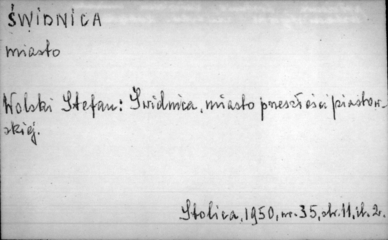 ŚWIDNICA
miasto
Wolski Stefan: Świdnica, miasto przeszłości piastow-
skiej.
Stolica, 1950, nr. 35, str. 11, il. 2.